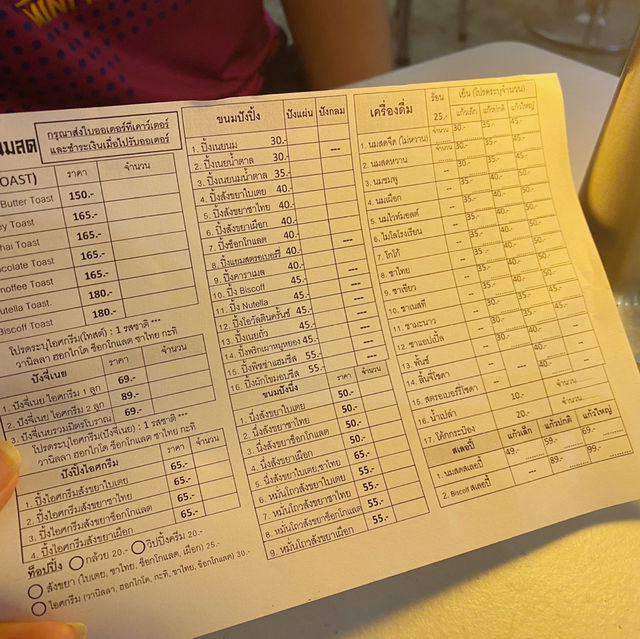 นมสด
กรุณาส่งใบออเดอร์ที่เคาว์เตอร์
และชำระเงินเมื่อไปรับออเดอร์
OAST) ราคา จำนวน
Butter Toast 150.-
ey Toast 165.-
hai Toast 165.-
ocolate Toast 165.-
noffee Toast 165.-
utella Toast. 180.-
Biscoff Toast 180.-
โปรดระบุไอศกรีม(โทสต์) : 1 รสชาติ ***
วานิลลา ฮอกไกโด ช็อกโกแลต ชาไทย กะทิ
ปังจี่เนย ราคา จำนวน
1. ปังจี่เนย ไอศกรีม 1 ลูก 69.-
2. ปังจี่เนย ไอศกรีม 2 ลูก 89.-
3. ปังจี่เนยรวมมิตรโบราณ 69.-
โปรดระบุไอศกรีม(ปังจี่เนย) : 1 รสชาติ ***
วานิลลา ฮอกไกโด ช็อกโกแลต ชาไทย กะทิ
ปังปิ้งไอศกรีม ราคา จำนวน
1. ปิ้งไอศกรีมสังขยาใบเตย 65.-
2. ปิ้งไอศกรีมสังขยาชาไทย 65.-
3. ปิ้งไอศกรีมสังขยาช็อกโกแลต 65.-
4. ปิ้งไอศกรีมสังขยาเผือก 65.-
ท็อปปิ้ง กล้วย 20.- วิปปิ้งครีม 20.-
สังขยา (ใบเตย, ชาไทย, ช็อกโกแลต, เผือก) 25.-
ไอศกรีม (วานิลลา, ฮอกไกโด, กะทิ, ชาไทย, ช็อกโกแลต) 30.-
ขนมปังปิ้ง ปังแผ่น ปังกลม
1. ปิ้งเนยนม 30.- ---
2. ปิ้งเนยน้ำตาล 30.-
3. ปิ้งเนยนมน้ำตาล 35.-
4. ปิ้งสังขยาใบเตย 40.-
5. ปิ้งสังขยาชาไทย 40.-
6. ปิ้งสังขยาเผือก 40.-
7. ปิ้งช็อกโกแลต 40.-
8. ปิ้งแยมสตรอเบอร์รี่ 40.- ---
9. ปิ้งคาราเมล 40.-
10. ปิ้ง Biscoff 40.- ---
11. ปิ้ง Nutella 45.- ---
12. ปิ้งโอวัลตินครันช์ 45.- ---
13. ปิ้งเนยถั่ว 45.- ---
14. ปิ้งพริกเผาหมูหยอง 45.- ---
15. ปิ้งพิซซ่าแฮมชีส 55.- ---
16. ปิ้งผักโขมอบชีส 55.- ---
ขนมปังนึ่ง ราคา จำนวน
1. นึ่งสังขยาใบเตย 50.-
2. นึ่งสังขยาชาไทย 50.-
3. นึ่งสังขยาช็อกโกแลต 50.-
4. นึ่งสังขยาเผือก 50.-
5. นึ่งสังขยาใบเตย,ชาไทย 65.-
6. หมั่นโถวสังขยาใบเตย 55.-
7. หมั่นโถวสังขยาชาไทย 55.-
8. หมั่นโถวสังขยาช็อกโกแลต 55.-
9. หมั่นโถวสังขยาเผือก 55.-
เครื่องดื่ม ร้อน 25.- เย็น (โปรดระบุจำนวน)
แก้วเล็ก แก้วปกติ แก้วใหญ่
1. นมสดจืด (ไม่หวาน)
2. นมสดหวาน
3. นมชมพู
4. นมเผือก
5. นมไวท์มอลต์
6. ไมโลโรงเรียน
7. โกโก้
8. ชาไทย
9. ชาเขียว
10. ชาเนสที
11. ชามะนาว
12. ชาแอปเปิ้ล
13. พั้นช์
14. ลิ้นจี่โซดา
15. สตรอเบอร์รี่โซดา
16. น้ำเปล่า 10.- จำนวน
17. โค้กกระป๋อง 20.- จำนวน
สเลอปี้ แก้วเล็ก แก้วปกติ แก้วใหญ่
1. นมสดสเลอปี้ 49.- 59.- 69.-
2. Biscoff สเลอปี้ --- 89.- 99.-